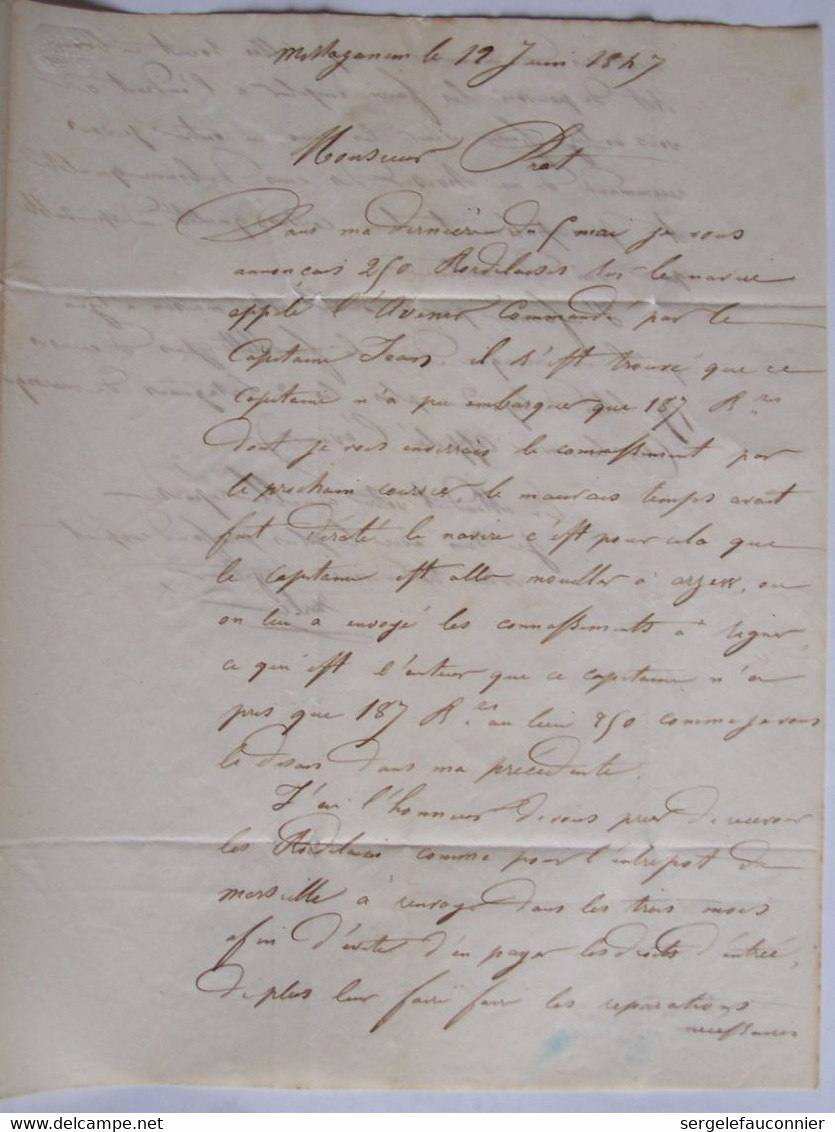 Mostaganem le 12 Juin 1847
Monsieur Prat
Dans ma dernière du 5 mai je vous
annonçais 250 Bordelaises sur le navire
applé l'Avenir Commandé par le
Capitaine Jean, il s'est trouvé que ce
capitaine n'a pu embarquer que 187 B.es
dont je vous enverrais le connaissement par
le prochain courrier, le mauvais temps avait
fait dératé le navire c'est pour cela que
le capitaine est allé mouiller à arzew, ou
on lui a envoyé les connaissements à signer,
ce qui est l'auteur que ce capitaine n'a
pris que 187 B.es au lieu 250 comme je vous
le disais dans ma précédente.
J'ai l'honneur de vous prier de recevoir
les Bordelaises comme pour l'entrepot de
marseille à renvoyé dans les trois mois
afin d'évité d'en payer les droits d'entrée,
de plus leur faire faire les reparations
necessaires
sergelefauconnier